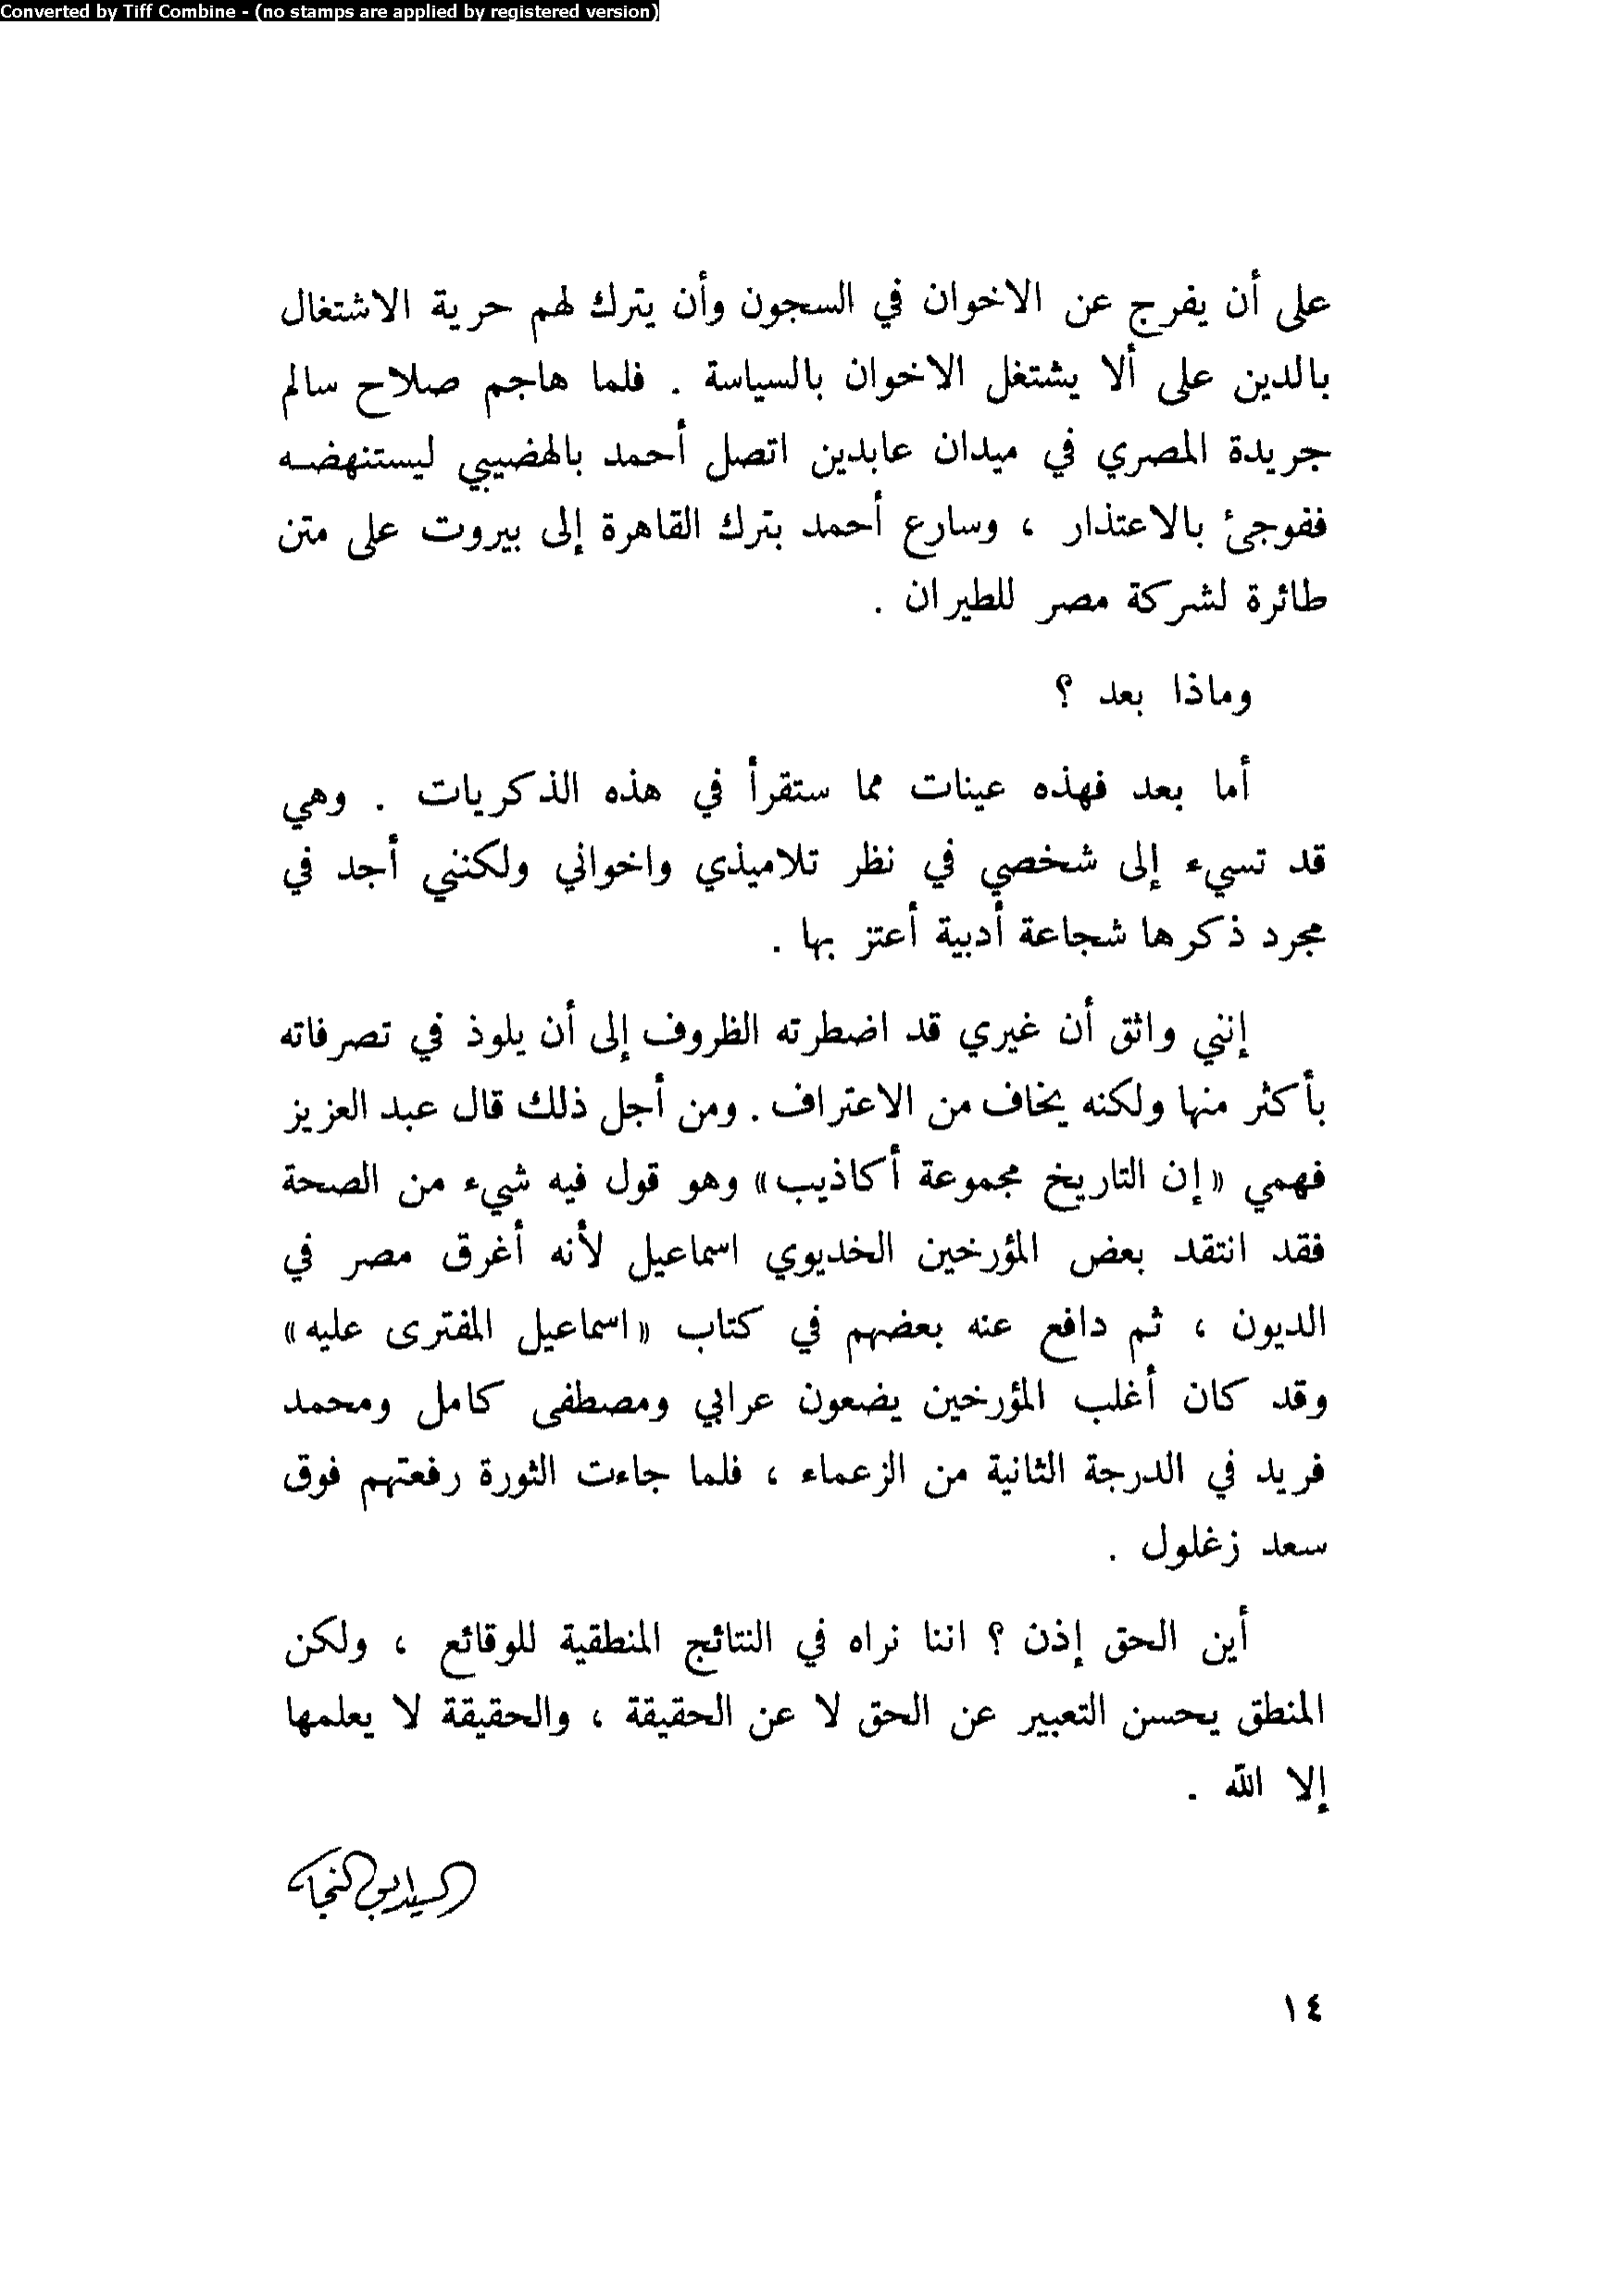 Converted by Tiff Combine - (no stamps are applied by registered version)
على أن يفرج عن الاخوان في السجون وأن يترك لهم حرية الاشتغال
بالدين على ألا يشتغل الاخوان بالسياسة . فلما هاجم صلاح سالم
جريدة المصري في ميدان عابدين اتصل أحمد بالهضيبي ليستنهضه
ففوجئ بالاعتذار ، وسارع أحمد بترك القاهرة إلى بيروت على متن
طائرة لشركة مصر للطيران .
وماذا بعد ؟
أما بعد فهذه عينات مما ستقرأ في هذه الذكريات . وهي
قد تسيء إلى شخصي في نظر تلاميذي واخواني ولكنني أجد في
مجرد ذكرها شجاعة أدبية أعتز بها .
إنني واثق أن غيري قد اضطرته الظروف إلى أن يلوذ في تصرفاته
بأكثر منها ولكنه يخاف من الاعتراف . ومن أجل ذلك قال عبد العزيز
فهمي «إن التاريخ مجموعة أكاذيب» وهو قول فيه شيء من الصحة
فقد انتقد بعض المؤرخين الخديوي اسماعيل لأنه أغرق مصر في
الديون ، ثم دافع عنه بعضهم في كتاب «اسماعيل المفترى عليه»
وقد كان أغلب المؤرخين يضعون عرابي ومصطفى كامل ومحمد
فريد في الدرجة الثانية من الزعماء ، فلما جاءت الثورة رفعتهم فوق
سعد زغلول .
أين الحق إذن ؟ اننا نراه في النتائج المنطقية للوقائع ، ولكن
المنطق يحسن التعبير عن الحق لا عن الحقيقة ، والحقيقة لا يعلمها
إلا الله .
السيد أبو النجا
١٤